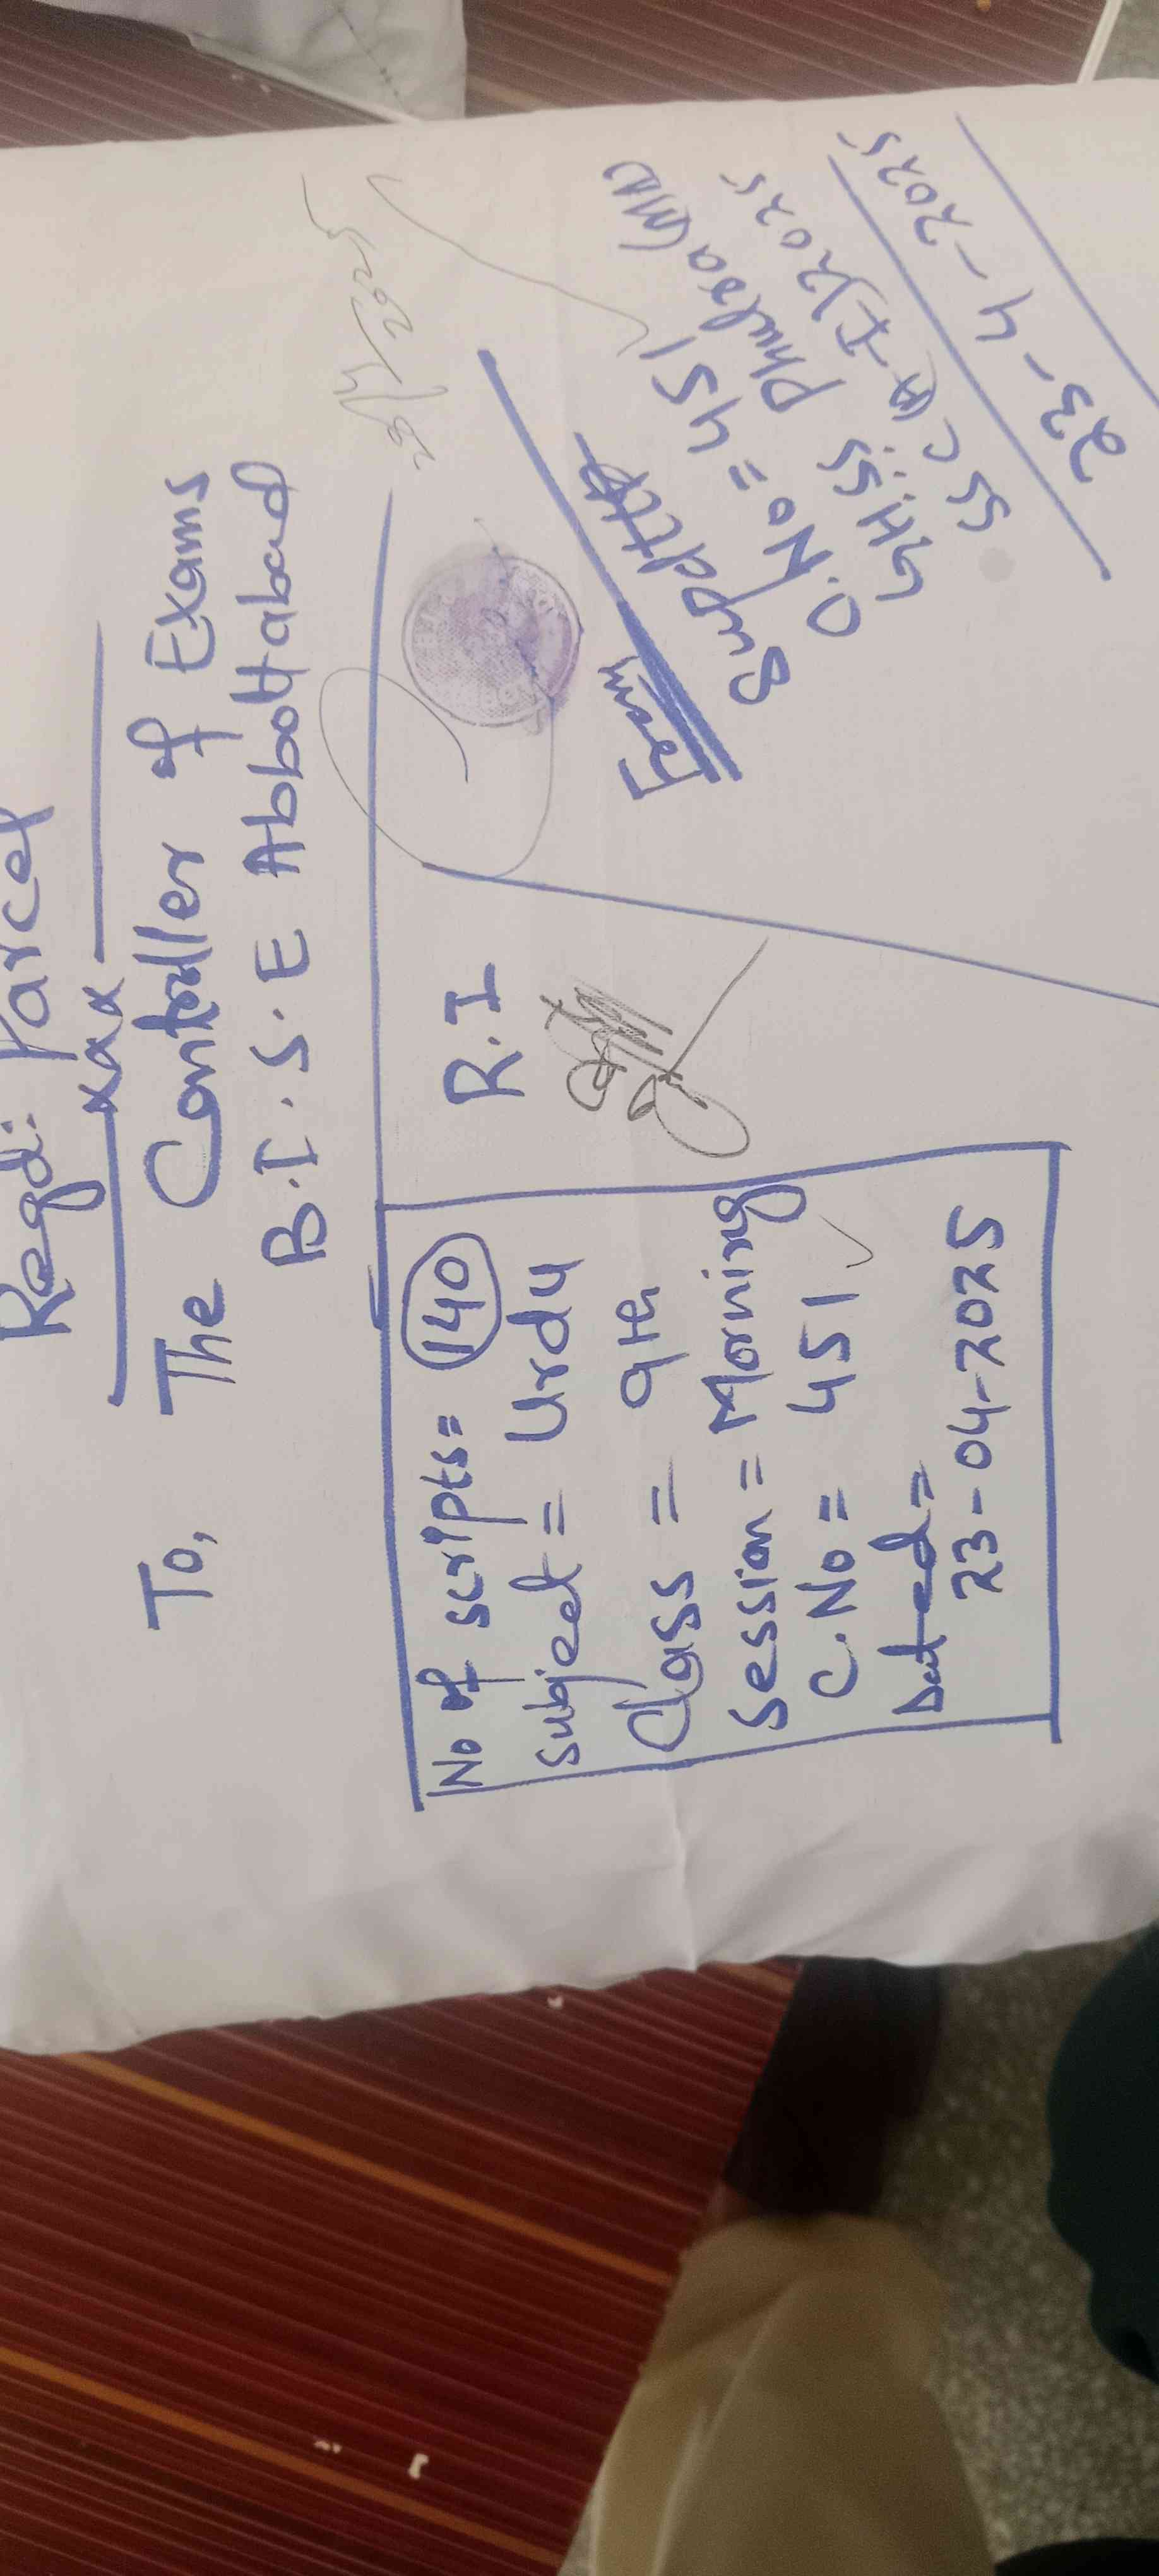 Regd: Parcel
xxx
To, The Controller of Exams
B.I.S.E Abbottabad
No of scripts= 140
Subject = Urdu
Class = 9th
Session = Morning
C.No = 451
Dated=
23-04-2025
R.I
From
Supdtt
C.No = 451
GHSS Phulraa (MN)
SSC (A-I) 2025
23-4-2025